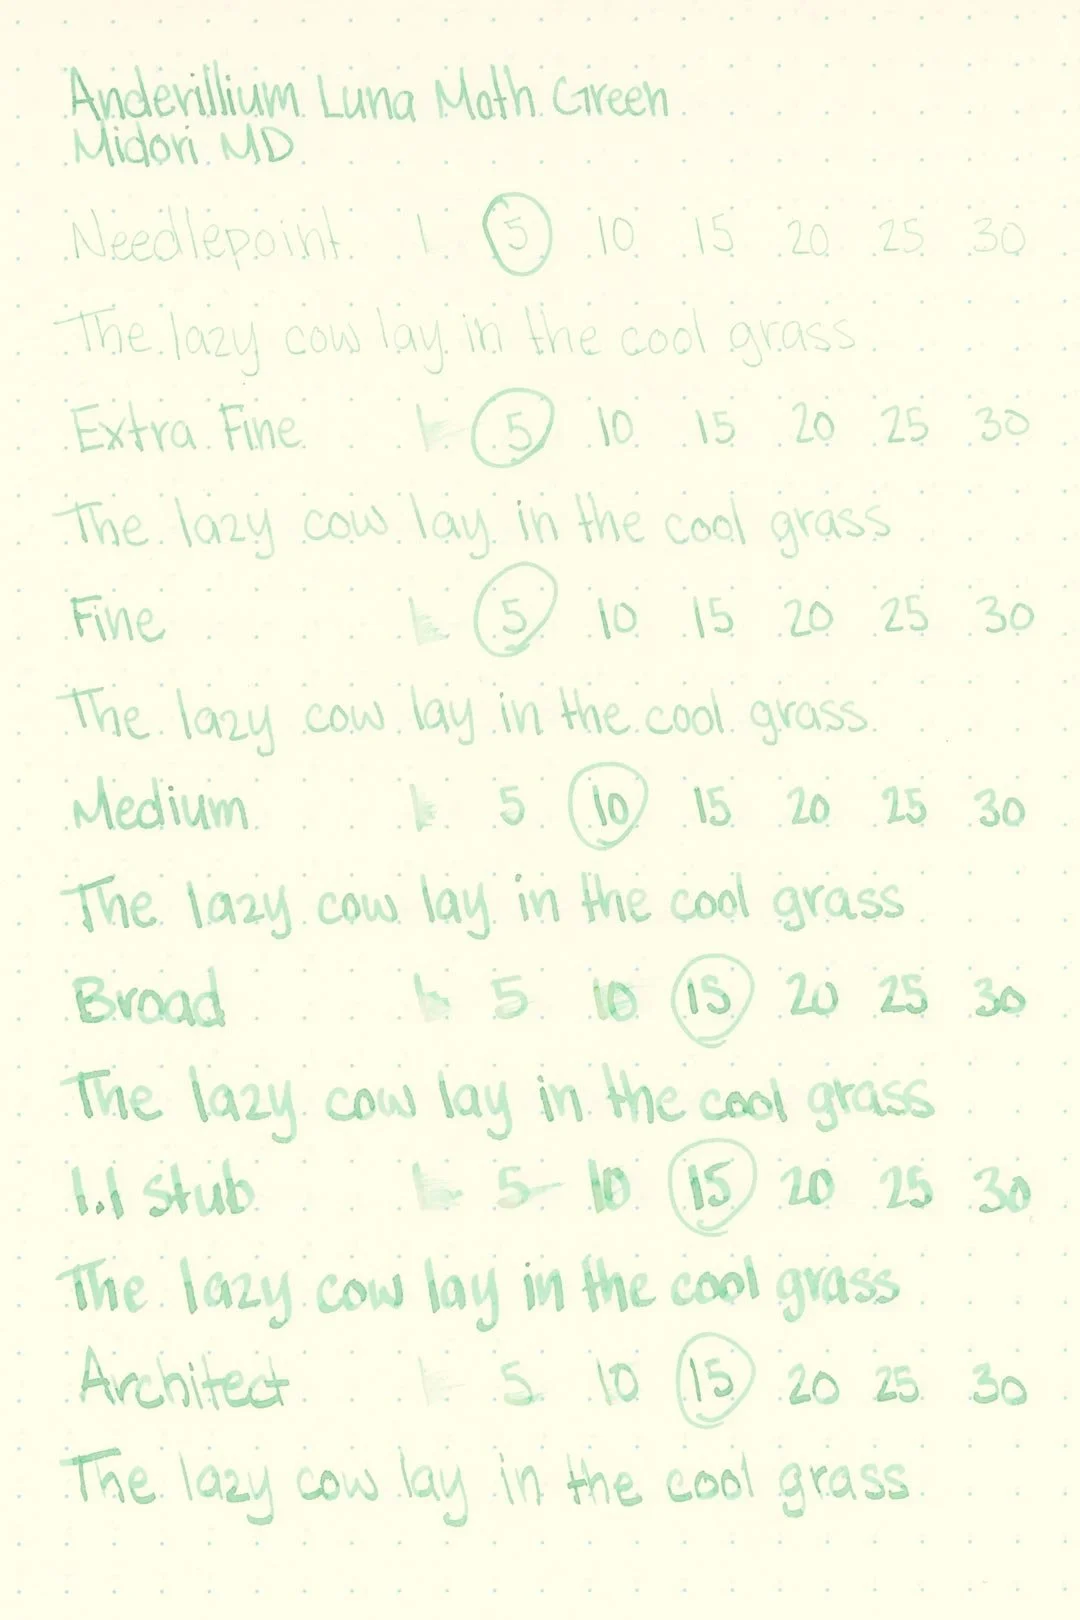 Anderillium Luna Moth Green
Midori MD
Needlepoint 1 5 10 15 20 25 30
The lazy cow lay in the cool grass
Extra Fine 1 5 10 15 20 25 30
The lazy cow lay in the cool grass
Fine 1 5 10 15 20 25 30
The lazy cow lay in the cool grass
Medium 1 5 10 15 20 25 30
The lazy cow lay in the cool grass
Broad 1 5 10 15 20 25 30
The lazy cow lay in the cool grass
1.1 Stub 1 5 10 15 20 25 30
The lazy cow lay in the cool grass
Architect 1 5 10 15 20 25 30
The lazy cow lay in the cool grass